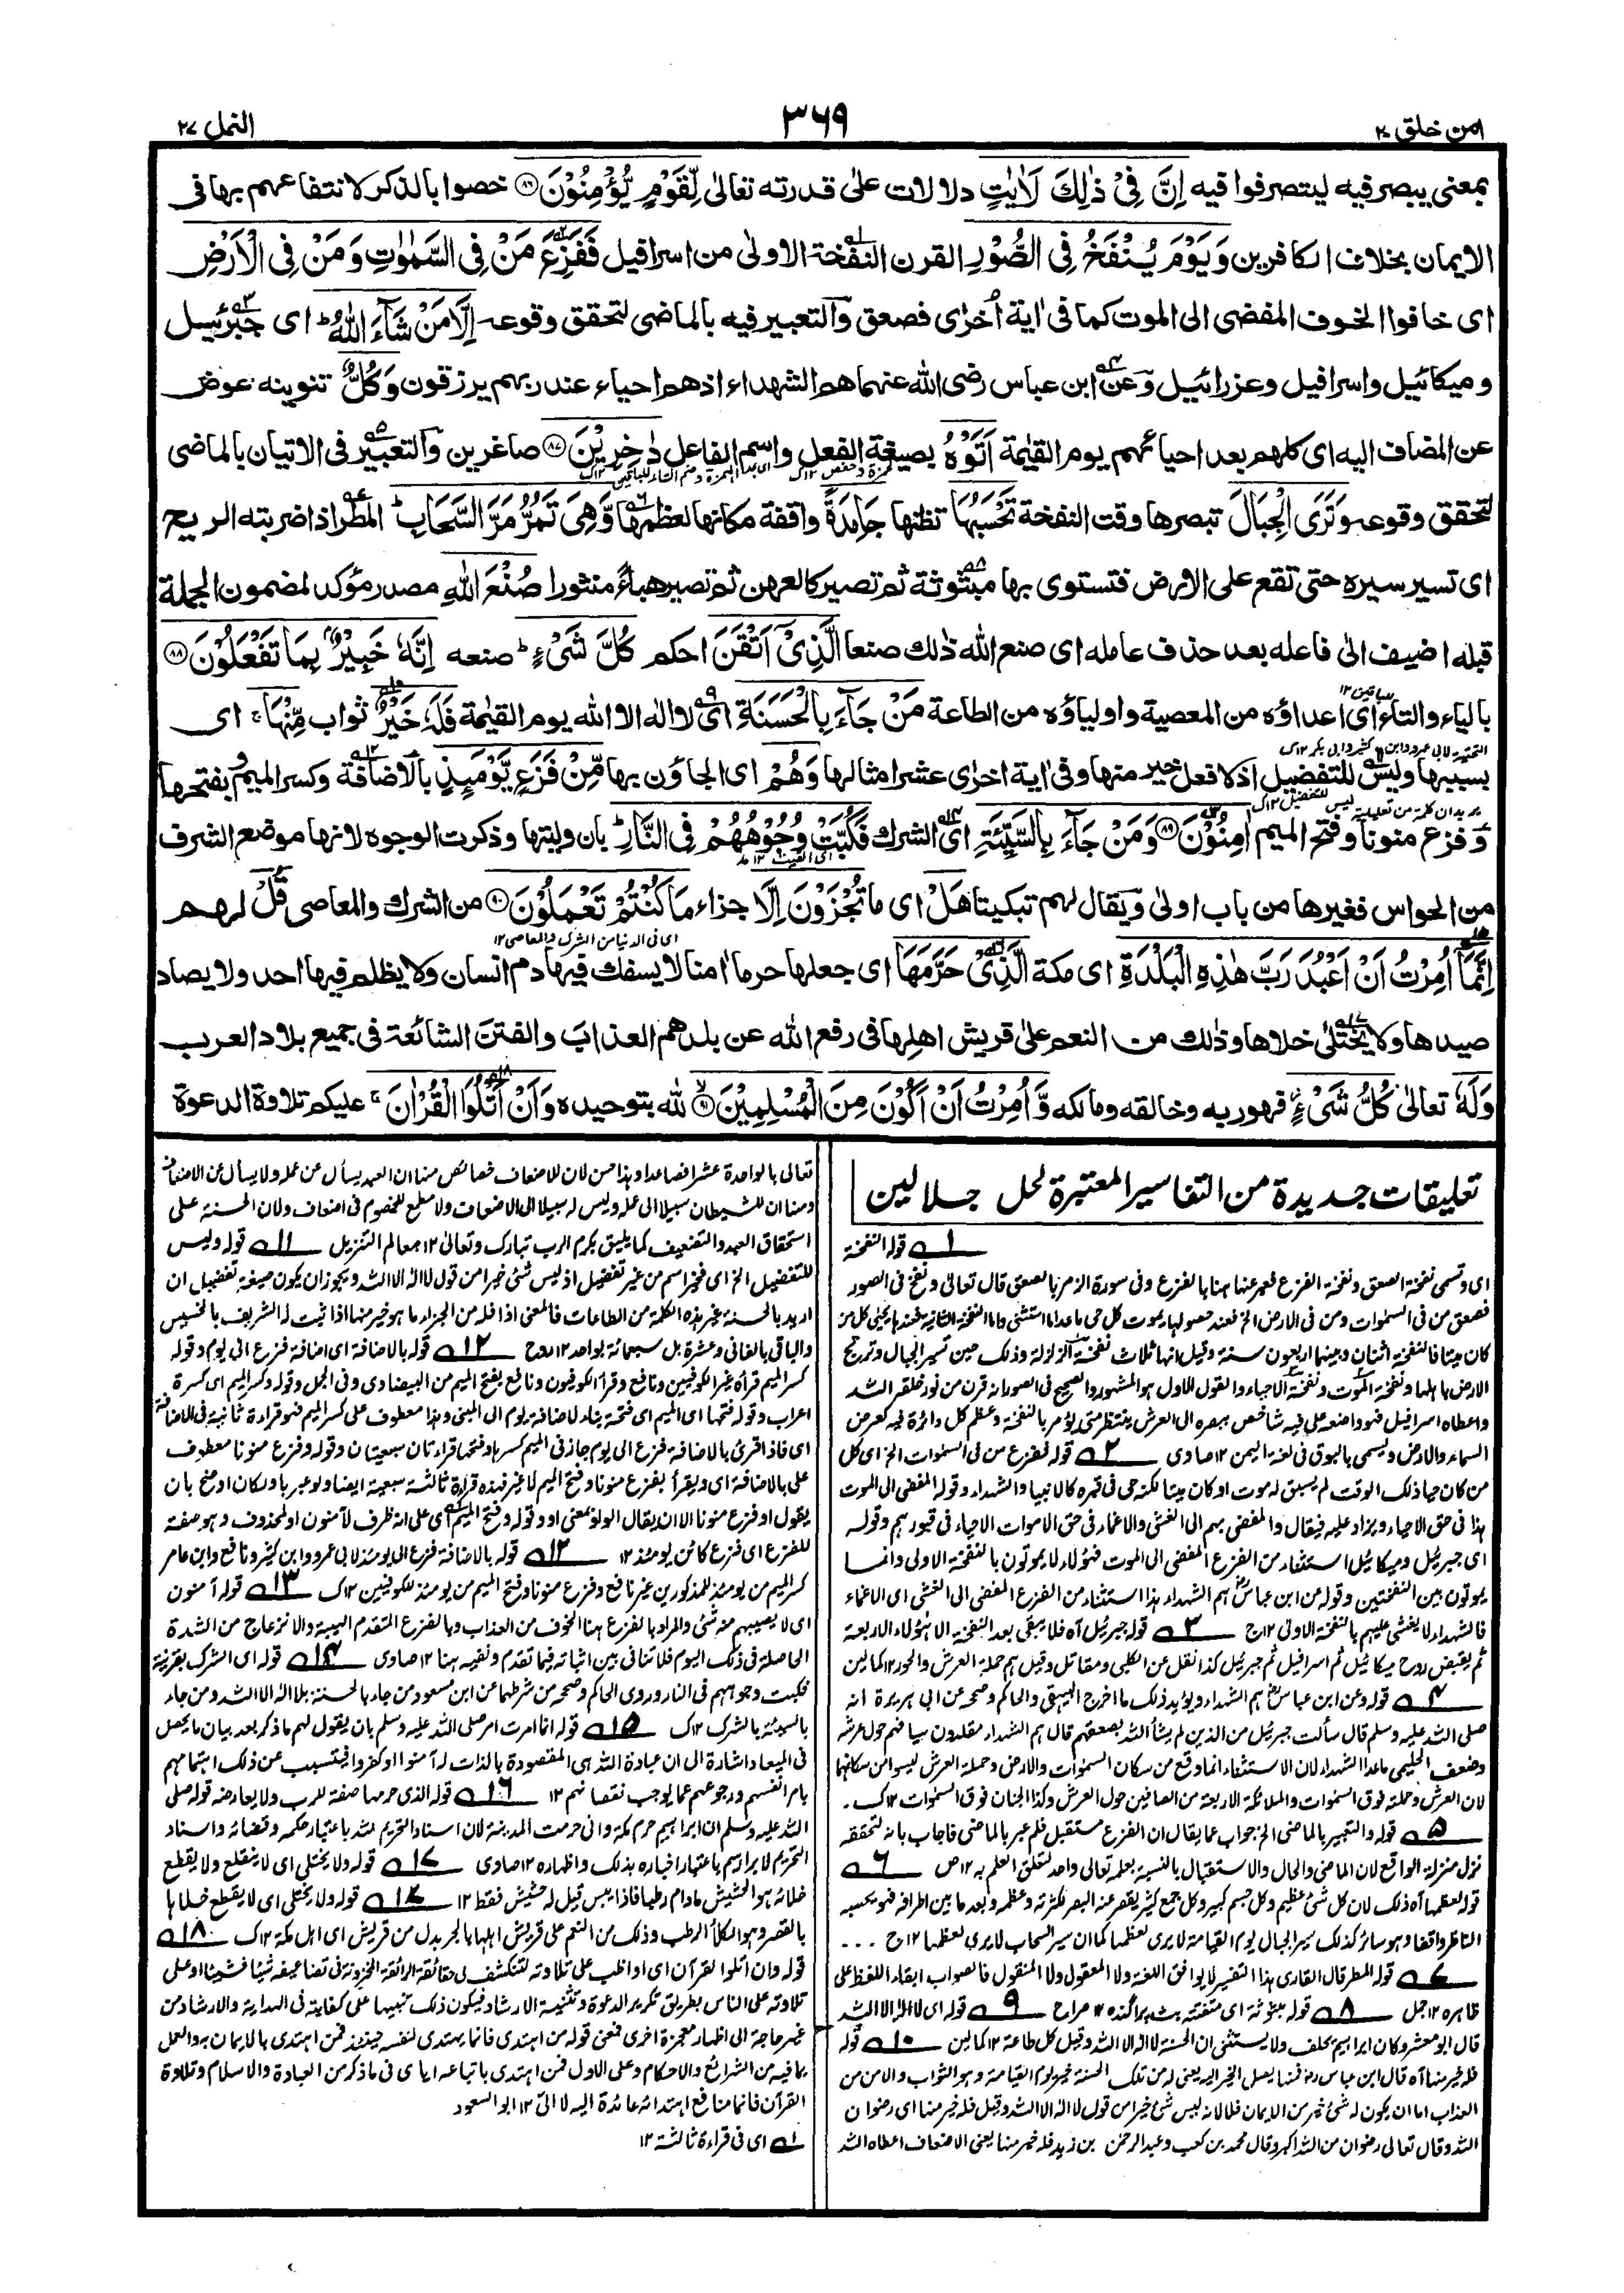 امن خلق ٢٠
٣٦٩
النمل ٢٧
بمعنى يبصر فيه ليتصرفوا فيه اِنَّ فِىْ ذٰلِكَ لَاٰيٰتٍ دلالات على قدرته تعالى لِّقَوْمٍ يُّؤْمِنُوْنَ ﴿٨٦﴾ خصوا بالذكر لانتفاعهم بها فى
الايمان بخلاف الكافرين وَيَوْمَ يُنْفَخُ فِى الصُّوْرِ القرن النفخة الاولى من اسرافيل فَفَزِعَ مَنْ فِى السَّمٰوٰتِ وَمَنْ فِى الْاَرْضِ
اى خافوا الخوف المفضى الى الموت كما فى اية اخرى فصعق والتعبير فيه بالماضى لتحقق وقوعه اِلَّا مَنْ شَآءَ اللّٰهُ ؕ اى جبرئيل
و ميكائيل واسرافيل وعزرائيل وعن ابن عباس رضى الله عنهما هم الشهداء اذ هم احياء عند ربهم يرزقون وَكُلٌّ تنوينه عوض
عن المضاف اليه اى كلهم بعد احيائهم يوم القيٰمة اَتَوْهُ بصيغة الفعل واسم الفاعل دٰخِرِيْنَ ﴿٨٧﴾ صاغرين والتعبير فى الاتيان بالماضى
لتحقق وقوعه وَتَرَى الْجِبَالَ تبصرها وقت النفخة تَحْسَبُهَا تظنها جَامِدَةً واقفة مكانها لعظمها وَّهِىَ تَمُرُّ مَرَّ السَّحَابِ ؕ المطر اذا ضربته الريح
اى تسير سيره حتى تقع على الارض فتستوى بها مبثوثة ثم تصير كالعهن ثم تصير هباءً منثورا صُنْعَ اللّٰهِ مصدر مؤكد لمضمون الجملة
قبله اضيف الى فاعله بعد حذف عامله اى صنع الله ذلك صنعا الَّذِىْٓ اَتْقَنَ احكم كُلَّ شَىْءٍ ؕ صنعه اِنَّهٗ خَبِيْرٌۢ بِمَا تَفْعَلُوْنَ ﴿٨٨﴾
بالياء والتاء اى اعداؤه من المعصية واولياؤه من الطاعة مَنْ جَآءَ بِالْحَسَنَةِ اى لا اله الا الله يوم القيٰمة فَلَهٗ خَيْرٌ ثواب مِّنْهَا ۚ اى
بسببها وليس للتفضيل اذ لا فعل خير منها وفى اية اخرى عشر امثالها وَهُمْ اى الجاؤن بها مِّنْ فَزَعٍ يَّوْمَئِذٍ بالاضافة وكسر الميم وبفتحها
و فزع منونا وفتح الميم اٰمِنُوْنَ ﴿٨٩﴾ وَمَنْ جَآءَ بِالسَّيِّئَةِ اى الشرك فَكُبَّتْ وُجُوْهُهُمْ فِى النَّارِ ؕ بان وليتها وذكرت الوجوه لانها موضع الشرف
من الحواس فغيرها من باب اولى ويقال لهم تبكيتا هَلْ اى ما تُجْزَوْنَ اِلَّا جزاء مَا كُنْتُمْ تَعْمَلُوْنَ ﴿٩٠﴾ من الشرك والمعاصى قُلْ لهم
اِنَّمَآ اُمِرْتُ اَنْ اَعْبُدَ رَبَّ هٰذِهِ الْبَلْدَةِ اى مكة الَّذِىْ حَرَّمَهَا اى جعلها حرما امنا لا يسفك فيها دم انسان ولا يظلم فيها احد ولا يصاد
صيدها ولا يختلى خلاها وذلك من النعم على قريش اهلها فى رفع الله عن بلدهم العذاب والفتن الشائعة فى جميع بلاد العرب
وَلَهٗ تعالى كُلُّ شَىْءٍ ؗ فهو ربه وخالقه ومالكه وَّاُمِرْتُ اَنْ اَكُوْنَ مِنَ الْمُسْلِمِيْنَ ﴿٩١﴾ لله بتوحيده وَاَنْ اَتْلُوَا الْقُرْاٰنَ ۚ عليكم تلاوة الدعوة
تعليقات جديدة من التفاسير المعتبرة لحل جلالين
١ قوله النفخة
اى وتسمى نفخة الصعق ونفخة الفزع فعبر عنها هنا بالفزع وفى سورة الزمر بالصعق قال تعالى ونفخ فى الصور
فصعق من فى السموات ومن فى الارض الخ فعند حصولها يموت كل حى ما عدا ما استثنى واما النفخة الثانية فعندها يحيى كل من
كان ميتا فالنفخة اثنتان وبينهما اربعون سنة وقيل انها ثلاث نفخة الزلزلة وذلك حين تسير الجبال وترتج
الارض باهلها ونفخة الموت ونفخة الاحياء والقول الاول هو المشهور والصحيح فى الصور انه قرن من نور خلقه الله
واعطاه اسرافيل فهو واضعه على فيه شاخص ببصره الى العرش ينتظر متى يؤمر بالنفخة وعظم كل دائرة فيه كعرض
السماء والارض ويسمى بالبوق فى لغة اليمن ١٢ صاوى ٢ قوله ففزع من فى السموات الخ اى كل
من كان حيا ذلك الوقت لم يسبق له موت او كان ميتا لكنه حى فى قبره كالانبياء والشهداء وقوله المفضى الى الموت
هذا فى حق الاحياء ويزاد عليه فيقال والمفضى بهم الى الغشى والاغماء فى حق الاموات الاحياء فى قبورهم وقوله
اى جبرئيل وميكائيل استثناء من الفزع المفضى الى الموت فهؤلاء لا يموتون بالنفخة الاولى وانما
يموتون بين النفختين وقوله عن ابن عباس هم الشهداء هذا استثناء من الفزع المفضى الى الغشى اى الاغماء
فالشهداء لا يغشى عليهم بالنفخة الاولى ١٢ ج ٣ قوله جبرئيل آه فلا يبقى بعد النفخة الا هؤلاء الاربعة
ثم يقبض روح ميكائيل ثم اسرافيل ثم جبرئيل كذا نقل عن الكلبى ومقاتل وقيل هم حملة العرش والحور ١٢ كمالين
٤ قوله وعن ابن عباس هم الشهداء ويؤيد ذلك ما اخرج البيهقى والحاكم وصححه عن ابى هريرة انه
صلى الله عليه وسلم قال سألت جبرئيل من الذين لم يشأ الله يصعقهم قال هم الشهداء مقلدون سيافهم حول عرشه
وضعف الحليمى ما عدا الشهداء لان الاستثناء انما وقع من سكان السموات والارض وحملة العرش ليسوا من سكانها
لان العرش وحملته فوق السموات والملائكة الاربعة من الصافين حول العرش وكذا الجنان فوق السموات ١٢ ك
٥ قوله والتعبير بالماضى الخ جواب عما يقال ان الفزع مستقبل فلم عبر بالماضى فاجاب بانه لتحققه
نزل منزلة الواقع لان الماضى والحال والاستقبال بالنسبة بعلمه تعالى واحد لتعلق العلم به ١٢ ص ٦
قوله لعظمها آه ذلك لان كل شئ عظيم وكل جسم كبير وكل جمع كثير يقصر عنه البصر لكثرته وعظمه وبعد ما بين اطرافه فهو يحسبه
الناظر واقفا وهو سائر كذلك سير الجبال يوم القيامة لا يرى لعظمها كما ان سير السحاب لا يرى لعظمها ١٢ ج
٧ قوله المطر قال القارى هذا التفسير لا يوافق اللغة ولا المعقول ولا المنقول فالصواب ابقاء اللفظ على
ظاهره ١٢ جمل ٨ قوله مبثوثة اى متفتتة بث پراگنده ١٢ صراح ٩ قوله اى لا اله الا الله
قال ابو معشر وكان ابراهيم يحلف ولا يستثنى ان الحسنة لا اله الا الله وقيل كل طاعة ١٢ كمالين ١٠ قوله
فله خير منها آه قال ابن عباس رض فمنها يصل الخير اليه يعنى له من تلك الحسنة خير يوم القيامة وهو الثواب والامن من
العذاب اما ان يكون له شئ خير من الايمان فلا لانه ليس شئ خيرا من قول لا اله الا الله وقيل فله خير منها اى رضوان
الله وقال تعالى رضوان من الله اكبر وقال محمد بن كعب وعبد الرحمن بن زيد فله خير منها يعنى الاضعاف اعطاه الله
تعالى بالواحدة عشرا فصاعدا وهذا حسن لان للاضعاف خصائص منها ان العبد يسأل عن عمله ولا يسأل عن الاضعاف
ومنها ان للشيطان سبيلا الى عمله وليس له سبيلا الى الاضعاف ولا مطمع للخصوم فى اضعاف ولان الحسنة على
استحقاق العبد والتضعيف كما يليق بكرم الرب تبارك وتعالى ١٢ معالم التنزيل ١١ قوله وليس
للتفضيل الخ اى فخير اسم من غير تفضيل اذ ليس شئ خيرا من قول لا اله الا الله ويجوز ان يكون صيغة تفضيل ان
اريد بالحسنة غير هذه الكلمة من الطاعات فالمعنى اذا فله من الجزاء ما هو خير منها اذا ثبت له الشريف بالخسيس
والباقى بالفانى وعشرة بل سبعمائة بواحد ١٢ روح ١٢ قوله بالاضافة اى اضافة فزع الى يوم وقوله
كسر الميم قرأه غير الكوفيين ونافع وقرأ الكوفيون ونافع بفتح الميم من البيضاوى وفى الجمل وقوله وكسر الميم اى كسرة
اعراب وقوله فتحها اى الميم اى فتحة بناء لاضافة يوم الى المبنى وهذا معطوف على كسر الميم فهو قراءة ثانية فى الاضافة
اى فاذا قرئ بالاضافة فزع الى يوم جاز فى الميم كسرها وفتحها قراءتان سبعيتان وقوله وفزع منونا معطوف
على بالاضافة اى ويقرأ بفزع منونا وفتح الميم لا غير فهذه قراءة ثالثة سبعية ايضا ولو عبر باو لكان اوضح بان
يقول او فزع منونا الا ان يقال الواو بمعنى او وقوله وفتح الميم اى على انه ظرف لآمنون او لمحذوف وهو صفة
للفزع اى فزع كائن يومئذ ١٢ ١٢ قوله بالاضافة فزع الى يومئذ لابى عمرو وابن كثير ونافع وابن عامر
كسر الميم من يومئذ للمذكورين غير نافع وفزع منونا وفتح الميم من يومئذ للكوفيين ١٢ ك ١٣ قوله آمنون
اى لا يصيبهم منه شئ والمراد بالفزع هنا الخوف من العذاب وبالفزع المتقدم الهيبة والانزعاج من الشدة
الحاصلة فى ذلك اليوم فلا تنافى بين اثباته فيما تقدم ونفيه هنا ١٢ صاوى ١٤ قوله اى الشرك بقرينة
فكبت وجوههم فى النار وروى الحاكم وصححه من شرطهما عن ابن مسعود من جاء بالحسنة بلا اله الا الله ومن جاء
بالسيئة بالشرك ١٢ ك ١٥ قوله انما امرت امر صلى الله عليه وسلم بان يقول لهم ما ذكر بعد بيان ما يحصل
فى الميعاد اشارة الى ان عبادة الله هى المقصودة بالذات له آمنوا او كفروا فيتسبب عن ذلك اهتمامهم
بامر انفسهم ورجوعهم عما يوجب نقصانهم ١٢ ١٦ قوله الذى حرمها صفة للرب ولا يعارضه قوله صلى
الله عليه وسلم ان ابراهيم حرم مكة وانى حرمت المدينة لان اسناد التحريم لله باعتبار حكمه وقضائه واسناد
التحريم لابراهيم باعتبار اخباره بذلك واظهاره ١٢ صاوى ١٧ قوله ولا يختلى اى لا ينقلع ولا يقطع
خلائه هو الحشيش مادام رطبا فاذا يبس قيل له حشيش فقط ١٢ ١٧ قوله ولا يختلى اى لا يقطع خلاها
بالقصر وهو الكلأ الرطب وذلك من النعم على قريش اهلها بالجر بدل من قريش اى اهل مكة ١٢ ك ١٨
قوله وان اتلوا القرآن اى اواظب على تلاوته لتنكشف لى حقائقه الرائقة المخزونة فى تضاعيفه شيئا فشيئا او على
تلاوته على الناس بطريق تكرير الدعوة وتثنية الارشاد فيكون ذلك تنبيها على كفايته فى الهداية والارشاد من
غير حاجة الى اظهار معجزة اخرى فمعنى قوله من اهتدى فانما يهتدى لنفسه حينئذ فمن اهتدى بالايمان به والعمل
بما فيه من الشرائع والاحكام وعلى الاول فمن اهتدى باتباعه اياى فى ما ذكر من العبادة والاسلام وتلاوة
القرآن فانما منافع اهتدائه عائدة اليه لا الىّ ١٢ ابو السعود
١ اى فى قراءة ثالثة ١٢